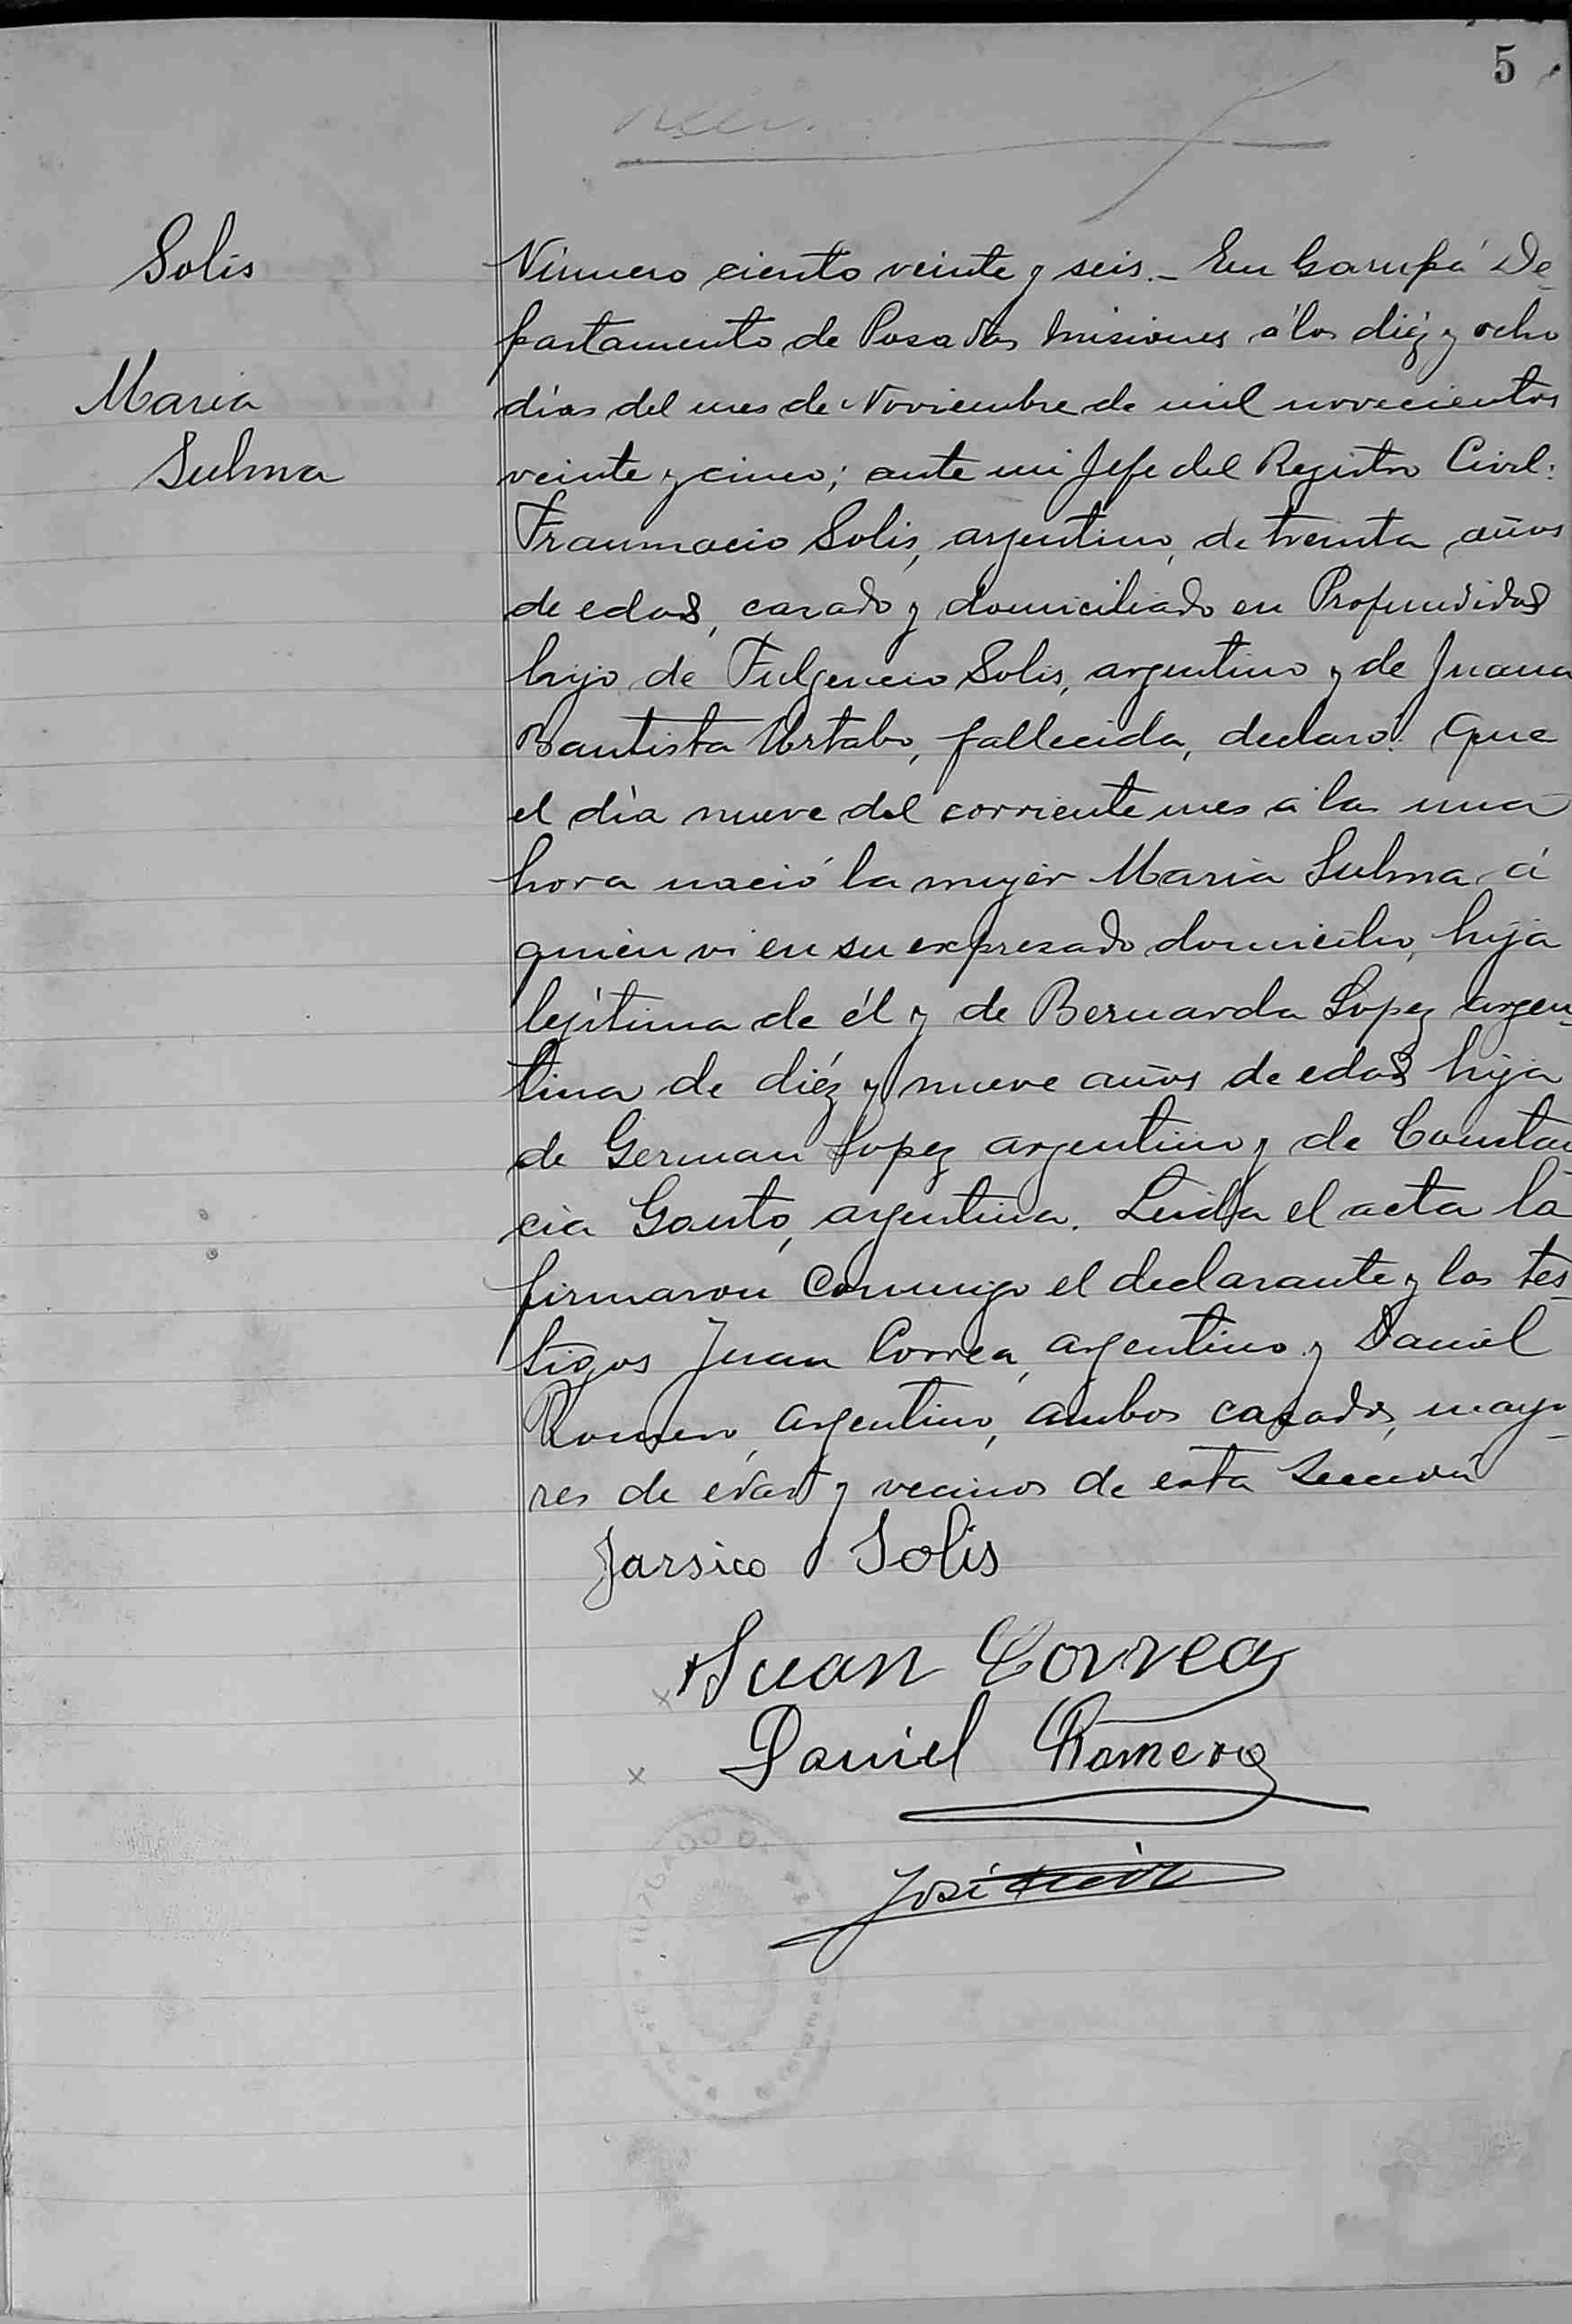 5
Solis
Maria
Sulma
Número ciento veinte y seis.- En Garupá De-
partamento de Posadas Misiones á los diéz y ocho
días del mes de Noviembre de mil novecientos
veinte y cinco; ante mi Jefe del Registro Civil:
Solis, argentino, de treinta años
de edad, casado y domiciliado en Profundidad
hijo de Fulgencio Solis, argentino y de Juana
Bautista fallecida, declaró: Que
el día nueve del corriente mes a las una
hora nació la mujer Maria Sulma á
quien vi en su expresado domicilio, hija
lejítima de él y de Bernarda Lopez argen-
tina de diéz y nueve años de edad hija
de German Lopez argentino y de Constan-
cia Gauto, argentina. Leida el acta la
firmaron Conmigo el declarante y los tes-
tigos Juan Correa, argentino y Daniel
Romero, argentino, ambos casados, mayo-
res de edad y vecinos de esta Sección
Jarsico Solis
Juan Correa
Daniel Romero
José